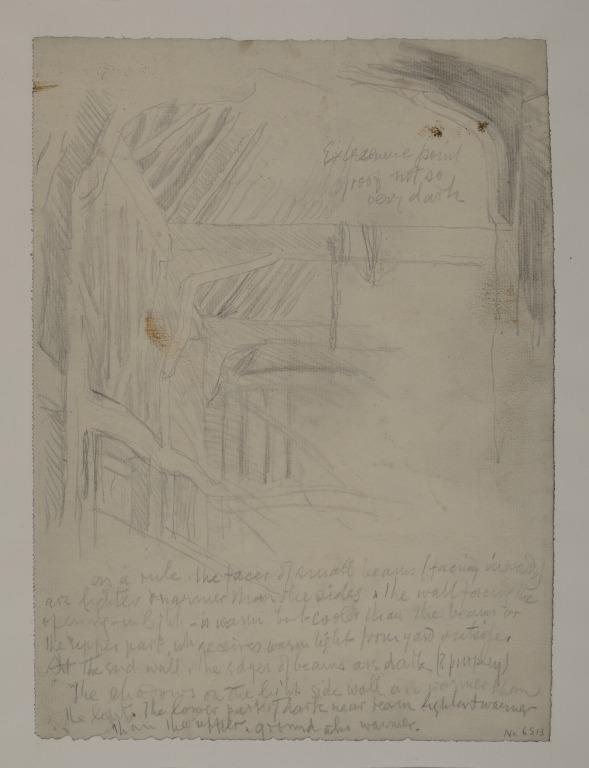 Extreme point
of roof not so
very dark
as a rule the faces of small beams (facing
are lighter & warmer than the sides. The wall facing the
opening in light is warm but cooler than the beams or
the upper part, wh receives warm light from yard outside.
At the end wall, the edges of beams are dark
The shadows on the light side wall are warmer than
the light. The lower part of dark near beam lighter & warmer
than the upper. ground also warmer.
No 6513